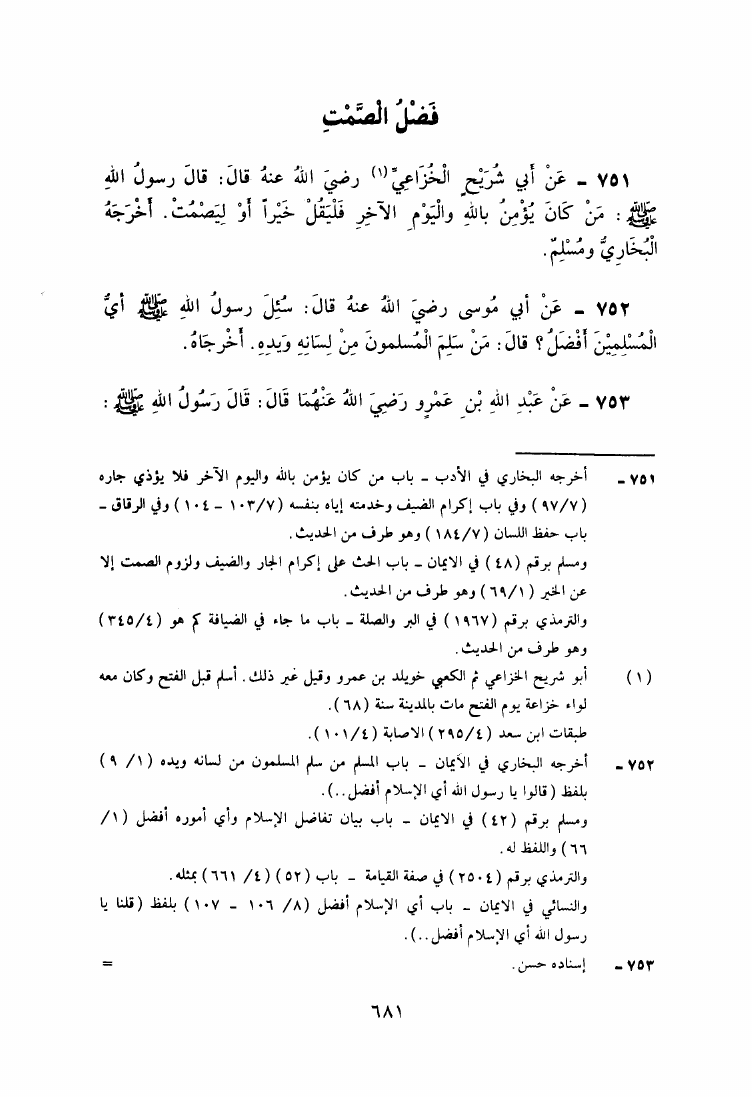 فَضْلُ الْصَّمْتِ
٧٥١ - عَنْ أَبي شُرَيْحٍ الْخُزَاعِيِّ(١) رضيَ اللهُ عنهُ قالَ: قالَ رسولُ اللهِ
ﷺ : مَنْ كَانَ يُؤْمِنُ باللهِ والْيَوْمِ الآخرِ فَلْيَقُلْ خَيْراً أَوْ لِيَصْمُتْ. أَخْرَجَهُ
الْبُخَارِيُّ ومُسْلِمٌ.
٧٥٢ - عَنْ أبي مُوسى رضيَ اللهُ عنهُ قالَ: سُئِلَ رسولُ اللهِ ﷺ أيُّ
الْمُسْلِمِيْنَ أَفْضَلُ؟ قالَ: مَنْ سَلِمَ الْمُسلمونَ مِنْ لِسَانِهِ وَيدِهِ. أَخْرجَاهُ.
٧٥٣ - عَنْ عَبْدِ اللهِ بْنِ عَمْرٍو رَضِيَ اللهُ عَنْهُمَا قَالَ: قَالَ رَسُولُ اللهِ ﷺ :
٧٥١ - أخرجه البخاري في الأدب - باب من كان يؤمن بالله واليوم الآخر فلا يؤذي جاره
(٩٧/٧) وفي باب إكرام الضيف وخدمته إياه بنفسه (١٠٣/٧ - ١٠٤) وفي الرقاق -
باب حفظ اللسان (١٨٤/٧) وهو طرف من الحديث.
ومسلم برقم (٤٨) في الايمان - باب الحث على إكرام الجار والضيف ولزوم الصمت إلا
عن الخير (٦٩/١) وهو طرف من الحديث.
والترمذي برقم (١٩٦٧) في البر والصلة - باب ما جاء في الضيافة كم هو (٣٤٥/٤)
وهو طرف من الحديث.
(١) أبو شريح الخزاعي ثم الكعبي خويلد بن عمرو وقيل غير ذلك. أسلم قبل الفتح وكان معه
لواء خزاعة يوم الفتح مات بالمدينة سنة (٦٨).
طبقات ابن سعد (٢٩٥/٤) الاصابة (١٠١/٤).
٧٥٢ - أخرجه البخاري في الأيمان - باب المسلم من سلم المسلمون من لسانه ويده (١/ ٩)
بلفظ (قالوا يا رسول الله أي الإسلام أفضل..).
ومسلم برقم (٤٢) في الايمان - باب بيان تفاضل الإسلام وأي أموره أفضل (١/
٦٦) واللفظ له.
والترمذي برقم (٢٥٠٤) في صفة القيامة - باب (٥٢) (٤/ ٦٦١) بمثله.
والنسائي في الايمان - باب أي الإسلام أفضل (٨/ ١٠٦ - ١٠٧) بلفظ (قلنا يا
رسول الله أي الإسلام أفضل..).
٧٥٣ - إسناده حسن. =
٦٨١